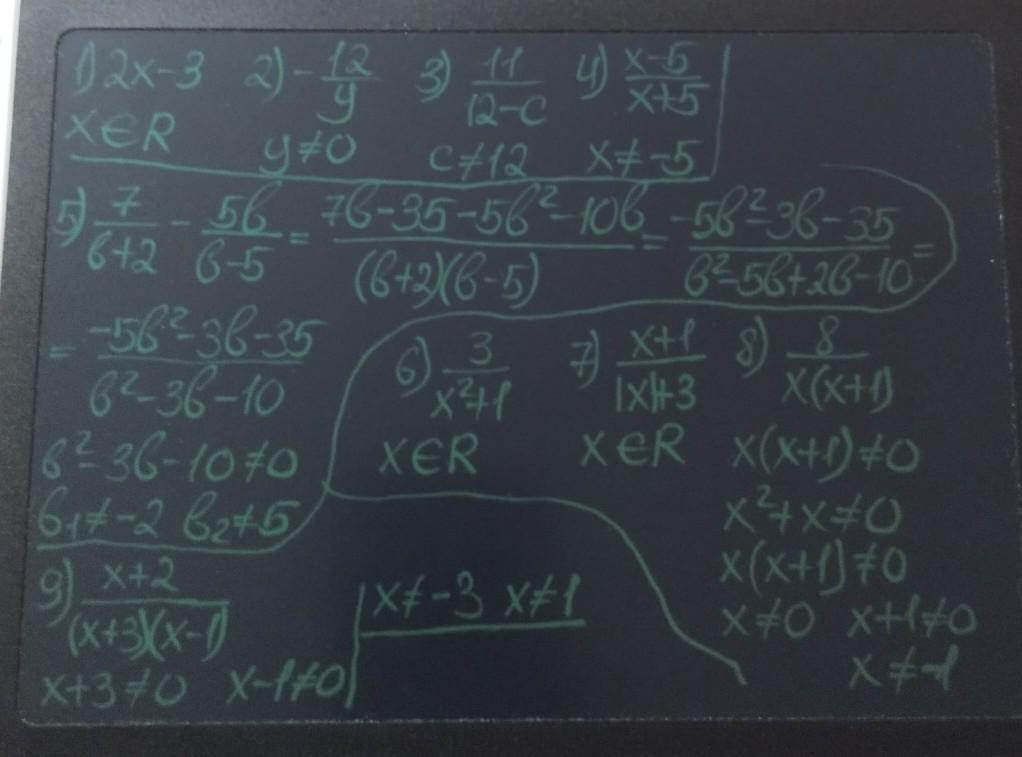 1) 2x-3 2) -12/y 3) 11/(12-c) 4) (x-5)/(x+5)
x∈R y≠0 c≠12 x≠-5
5) 7/(b+2) - 5b/(b-5) = (7b-35-5b²-10b)/((b+2)(b-5)) = (-5b²-3b-35)/(b²-5b+2b-10) =
= (-5b²-3b-35)/(b²-3b-10)
b²-3b-10≠0
b₁≠-2 b₂≠5
6) 3/(x²+1) 7) (x+1)/(|x|+3) 8) 8/(x(x+1))
x∈R x∈R x(x+1)≠0
x²+x≠0
x(x+1)≠0
x≠0 x+1≠0
x≠-1
9) (x+2)/((x+3)(x-1))
x+3≠0 x-1≠0
x≠-3 x≠1